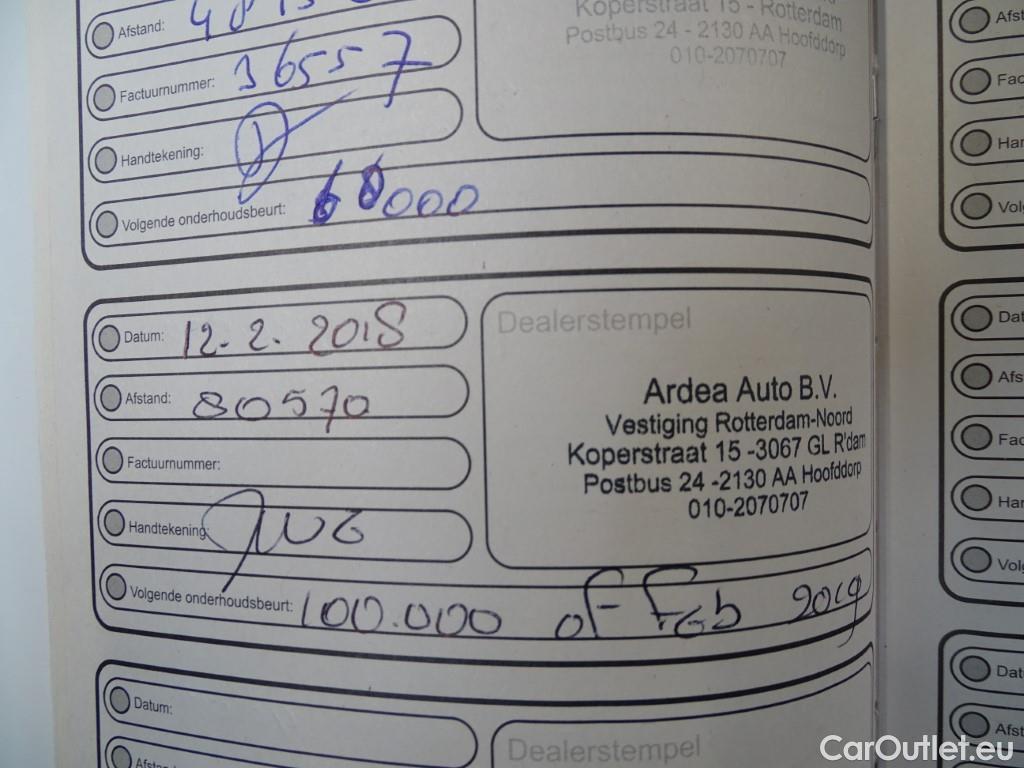 Afstand:
Factuurnummer: 36557
Handtekening:
Volgende onderhoudsbeurt: 60000
Koperstraat 15 - Rotterdam
Postbus 24 - 2130 AA Hoofddorp
010-2070707
Datum: 12-2-2018
Afstand: 80570
Factuurnummer:
Handtekening:
Volgende onderhoudsbeurt: 100.000 of Feb 2019
Dealerstempel
Ardea Auto B.V.
Vestiging Rotterdam-Noord
Koperstraat 15 -3067 GL R'dam
Postbus 24 -2130 AA Hoofddorp
010-2070707
Datum:
Dealerstempel
CarOutlet.eu